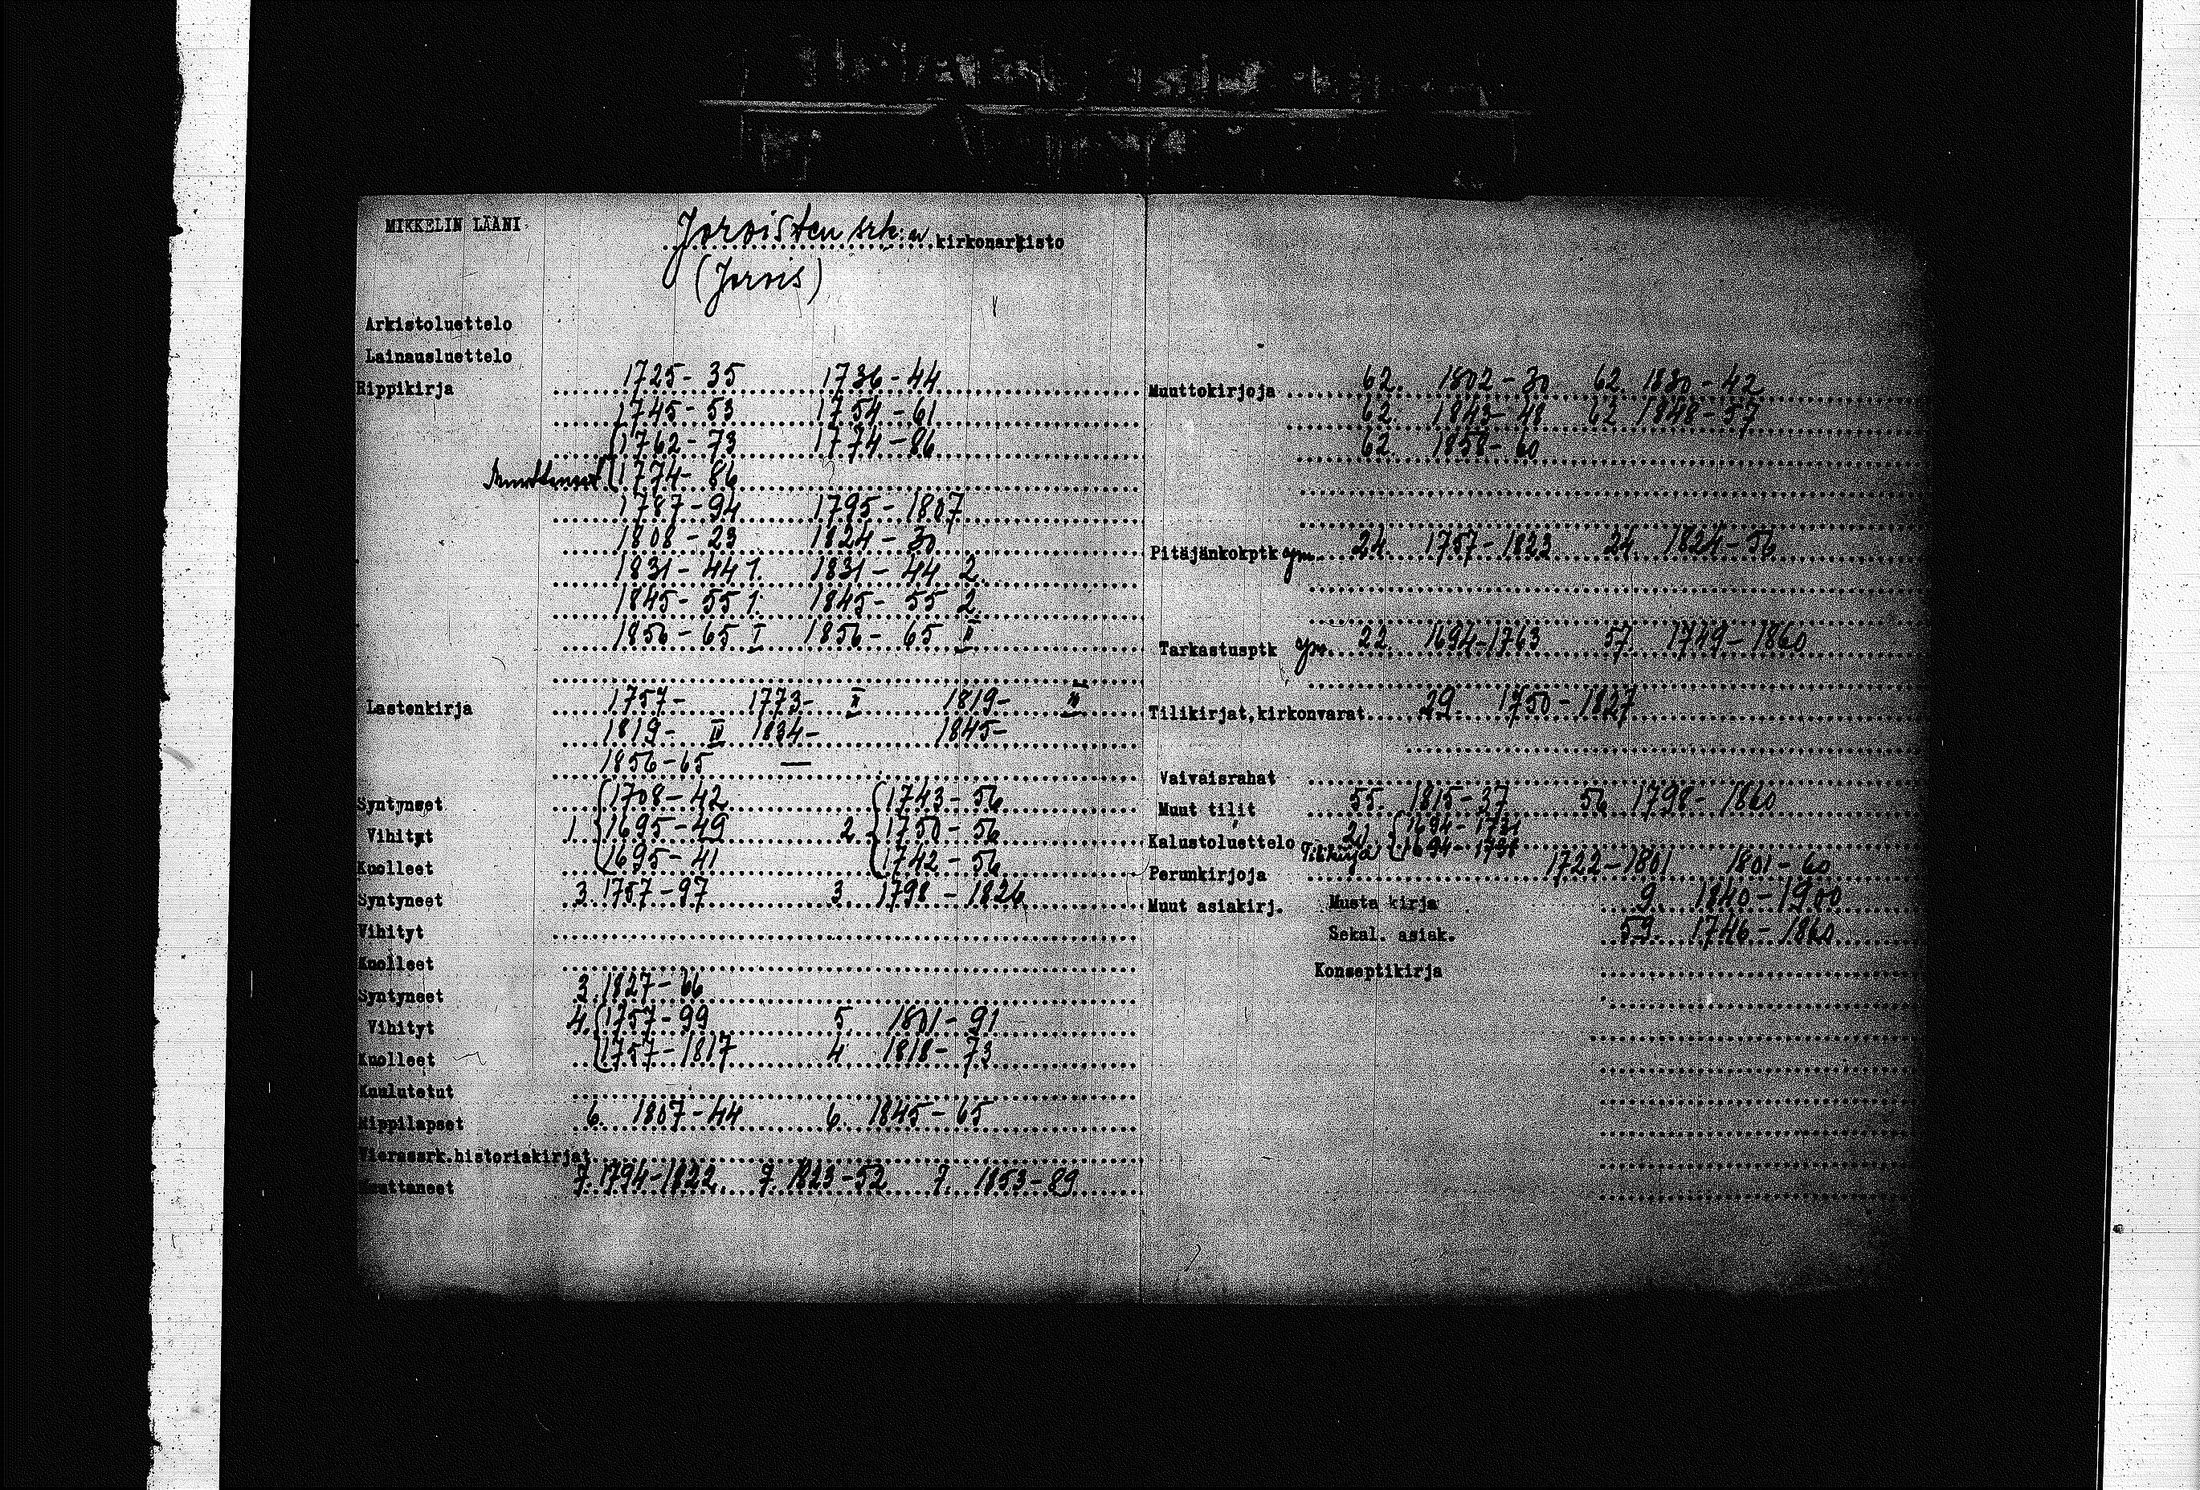 MIKKELIN LÄÄNI
Joroisten srk:n kirkonarkisto
(Jorois)
Arkistoluettelo
Lainausluettelo
Rippikirja 1725-35 1736-44
1745-53 1754-61
1762-73 1774-86
1774-86
1787-94 1795-1807
1808-23 1824-30
1831-44 1. 1831-44 2.
1845-55 1. 1845-55 2.
1856-65 I 1856-65 II
Lastenkirja 1757- 1773- II 1819- II
1819- IV 1834- 1845-
1856-65 —
Syntyneet 1708-42 1743-56
Vihityt 1. 1695-49 2 1750-56
Kuolleet 1695-41 1742-56
Syntyneet 3. 1757-97 3. 1798-1826
Vihityt
Kuolleet
Syntyneet 3. 1827-66
Vihityt 4. 1757-99 5 1801-91
Kuolleet 1757-1817 4 1818-73
Kuulutetut
Rippilapset 6. 1807-44 6. 1845-65
Vierassrk.historiakirjat
Muuttaneet 7. 1794-1822. 7. 1823-52 7. 1853-89
Muuttokirjoja 62. 1802-30 62. 1830-42
62. 1843-48 62 1848-57
62. 1858-60
Pitäjänkokptk ym. 24. 1757-1823 24 1824-56
Tarkastusptk ym. 22. 1694-1763 57. 1749-1860
Tilikirjat,kirkonvarat 29. 1750-1827
Vaivaisrahat
Muut tilit 55. 1815-37 56 1798-1860
Kalustoluettelo 21 1694-1731
Tilikirja 1694-1731
Perunkirjoja 1722-1801 1801-60
Muut asiakirj. Musta kirja 9. 1840-1900
Sekal. asiak. 59. 1746-1860
Konseptikirja